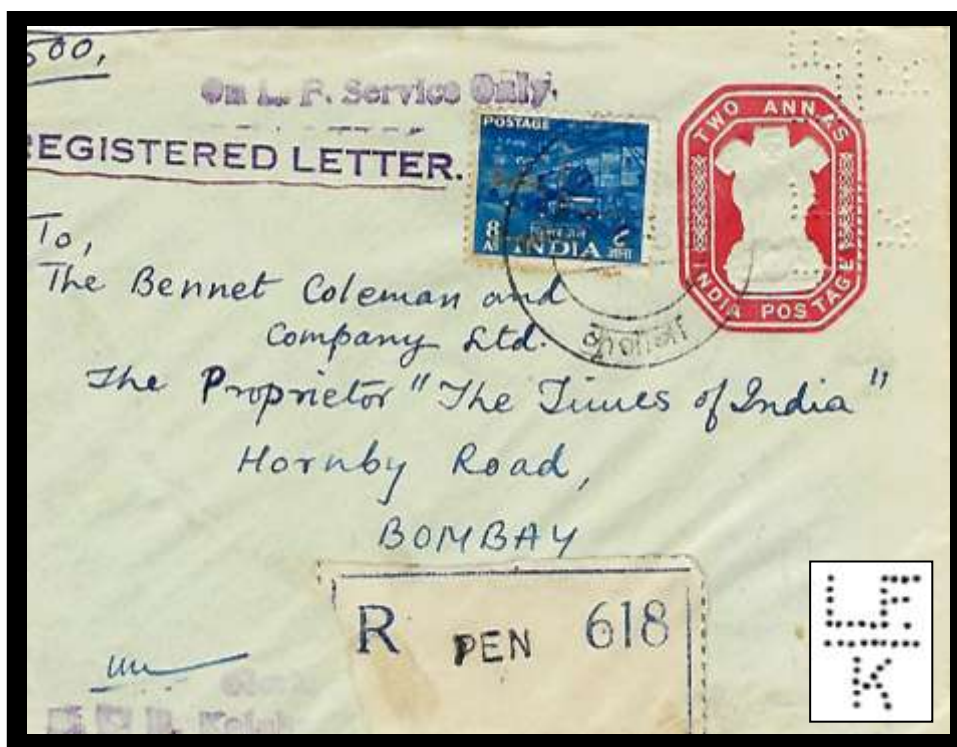 500,
On L. F. Service Only.
REGISTERED LETTER.
POSTAGE
8 AS INDIA ८ आना
TWO ANNAS
INDIA POSTAGE
To,
The Bennet Coleman and
Company Ltd.
The Proprietor "The Times of India"
Hornby Road,
BOMBAY
R PEN 618
L.F.
K